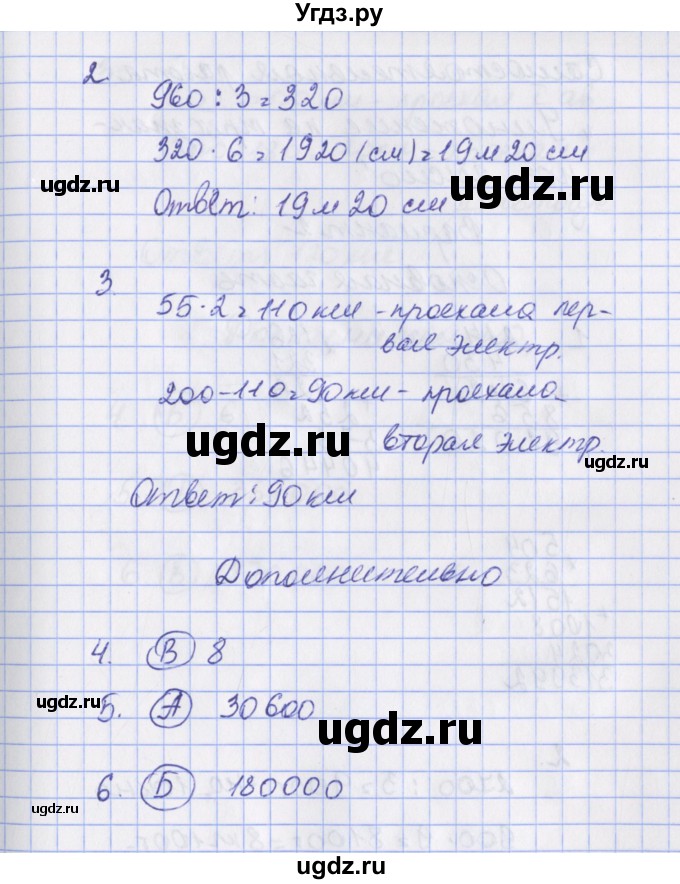 Угдз.ру
2.
960 : 3 = 320
320 · 6 = 1920 (см) = 19 м 20 см
Ответ: 19 м 20 см
3.
55 · 2 = 110 км - проехала пер-
вая электр.
200 - 110 = 90 км - проехала
вторая электр.
Ответ: 90 км
Дополнительно
4. В 8
5. А 30600
6. Б 180000
ugdz.ru
ugdz.ru
ugdz.ru
ugdz.ru
ugdz.ru
ugdz.ru
ugdz.ru
ugdz.ru
ugdz.ru